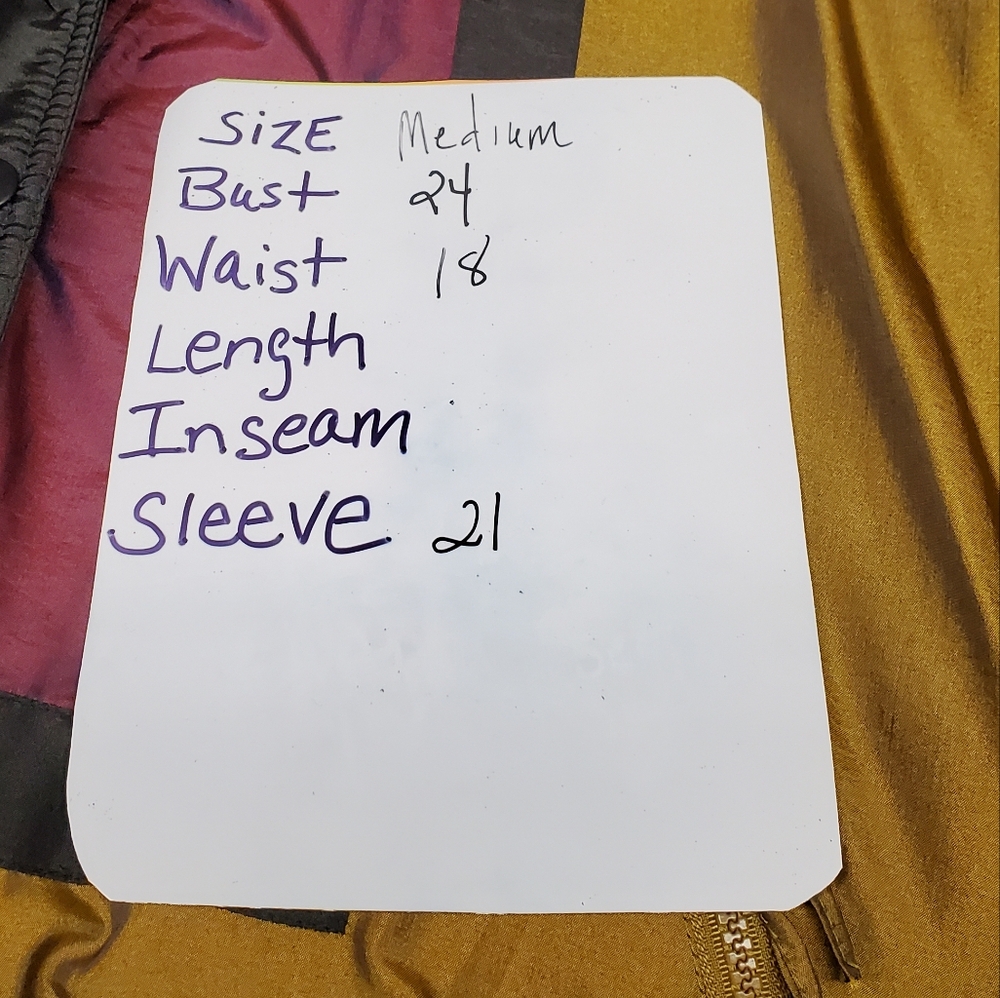 SiZE Medium
Bust 24
Waist 18
Length
Inseam
Sleeve 21